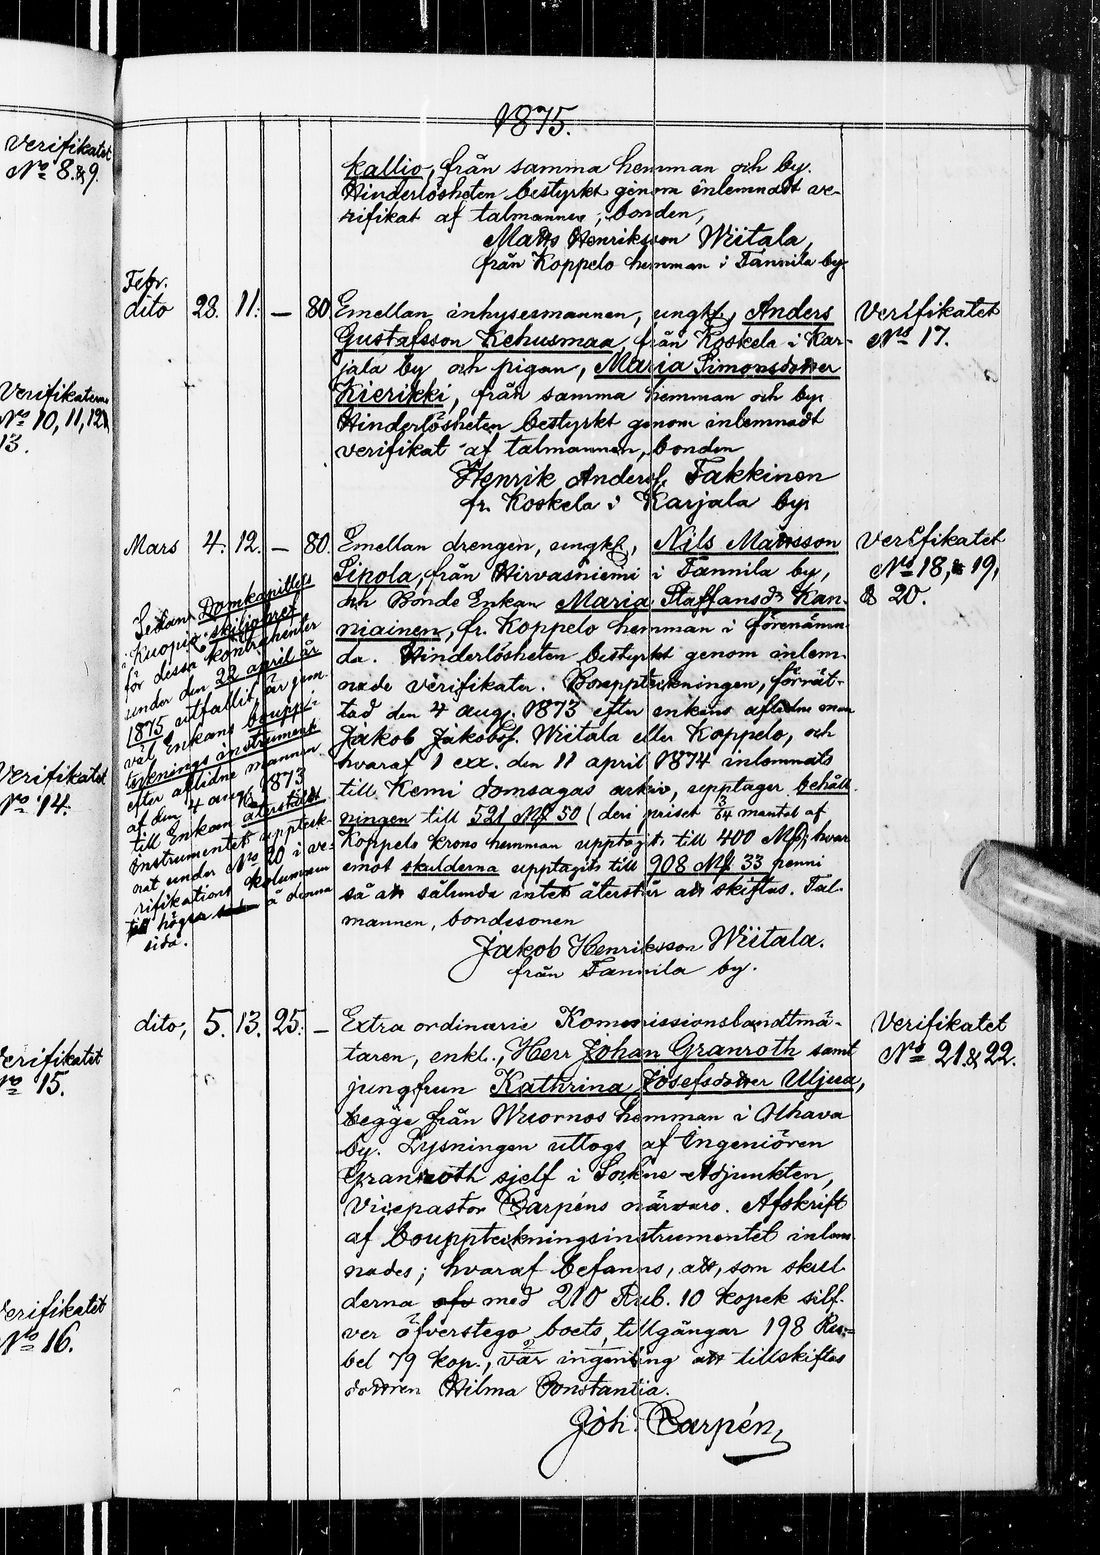 1875.
Verifikatet
No 8.&9.
kallio, från samma hemman och by.
Hinderlösheten bestyrkt genom inlemnadt ve-
rifikat af talmannen, bonden,
Matts Henriksson Wiitala,
från Koppelo hemman i Tannila by
Febr.
dito 28. 11. — 80
Emellan inhysesmannen, ungk., Anders
Gustafsson Kehusmaa, från Koskela i Kar-
jala by och pigan, Maria Simonsdotter
Kierikki, från samma hemman och by.
Hinderlösheten bestyrkt genom inlemnadt
verifikat af talmannen, bonden
Henrik Anders. Takkinen
fr. Koskela i Karjala by.
Verifikatet
No 17.
Verifikaterna
No 10, 11, 12 &
13.
Mars 4. 12. — 80.
Emellan drengen, ungk., Nils Mattsson
Sipola, från Hirvasniemi i Tannila by,
och Bonde Enkan Maria Staffansdr Kan-
niainen, fr. Koppelo hemman i förenämn-
da. Hinderlösheten bestyrkt genom inlem-
nade verifikater. Bouppteckningen, förrät-
tad den 4 aug. 1873 efter enkans aflidne man
Jakob Jakobsf. Wiitala eller Koppelo, och
hvaraf 1 exx. den 11 april 1874 inlemnats
till Kemi domsagas arkiv, upptager behåll-
ningen till 521 Mf 50 (deri priset 3/64 mantal af
Koppelo krono hemman upptagit till 400 Mf; hvar
emot skulderna upptagits till 908 Mf. 33 penni
så att sålunda intet återstår att skiftas. Tal-
mannen, bondesonen
Jakob Henriksson Wiitala.
från Tannila by.
Verifikatet
No 18, 19,
& 20.
Sedan Domkapitlets
i Kuopio skiljobref
för dessa kontrahenter
under den 22 april år
1875 utfallit, är jem-
väl Enkans bouppt-
tecknings instrument
efter aflidne mannen
af den 4 aug. 1873
till Enkan återstäldt
Instrumentet uppteck-
nat under No 20 i ve-
rifikations kolumnen
till höger å denna
sida.
Verifikatet
No 14.
dito, 5. 13. 25. —
Extra ordinarie Kommissionslandtmä-
taren, enkl., Herr Johan Granroth samt
jungfrun Kathrina Josefsdotter Uljua,
begge från Wuornos hemman i Olhava
by. Lysningen uttogs af Ingeniören
Granroth sjelf i Sockne-Adjunkten,
Vicepastor Carpéns närvaro. Afskrift
af bouppteckningsinstrumentet inlem-
nades; hvaraf befanns, att, som skul-
derna med 210 Rub. 10 kopek silf-
ver öfverstego boets tillgångar 198 Ru-
bel 79 kop., var ingenting att tillskiftas
dottren Hilma Constantia.
Joh. Carpén,
Verifikatet
No 21 & 22.
Verifikatet
No 15.
Verifikatet
No 16.